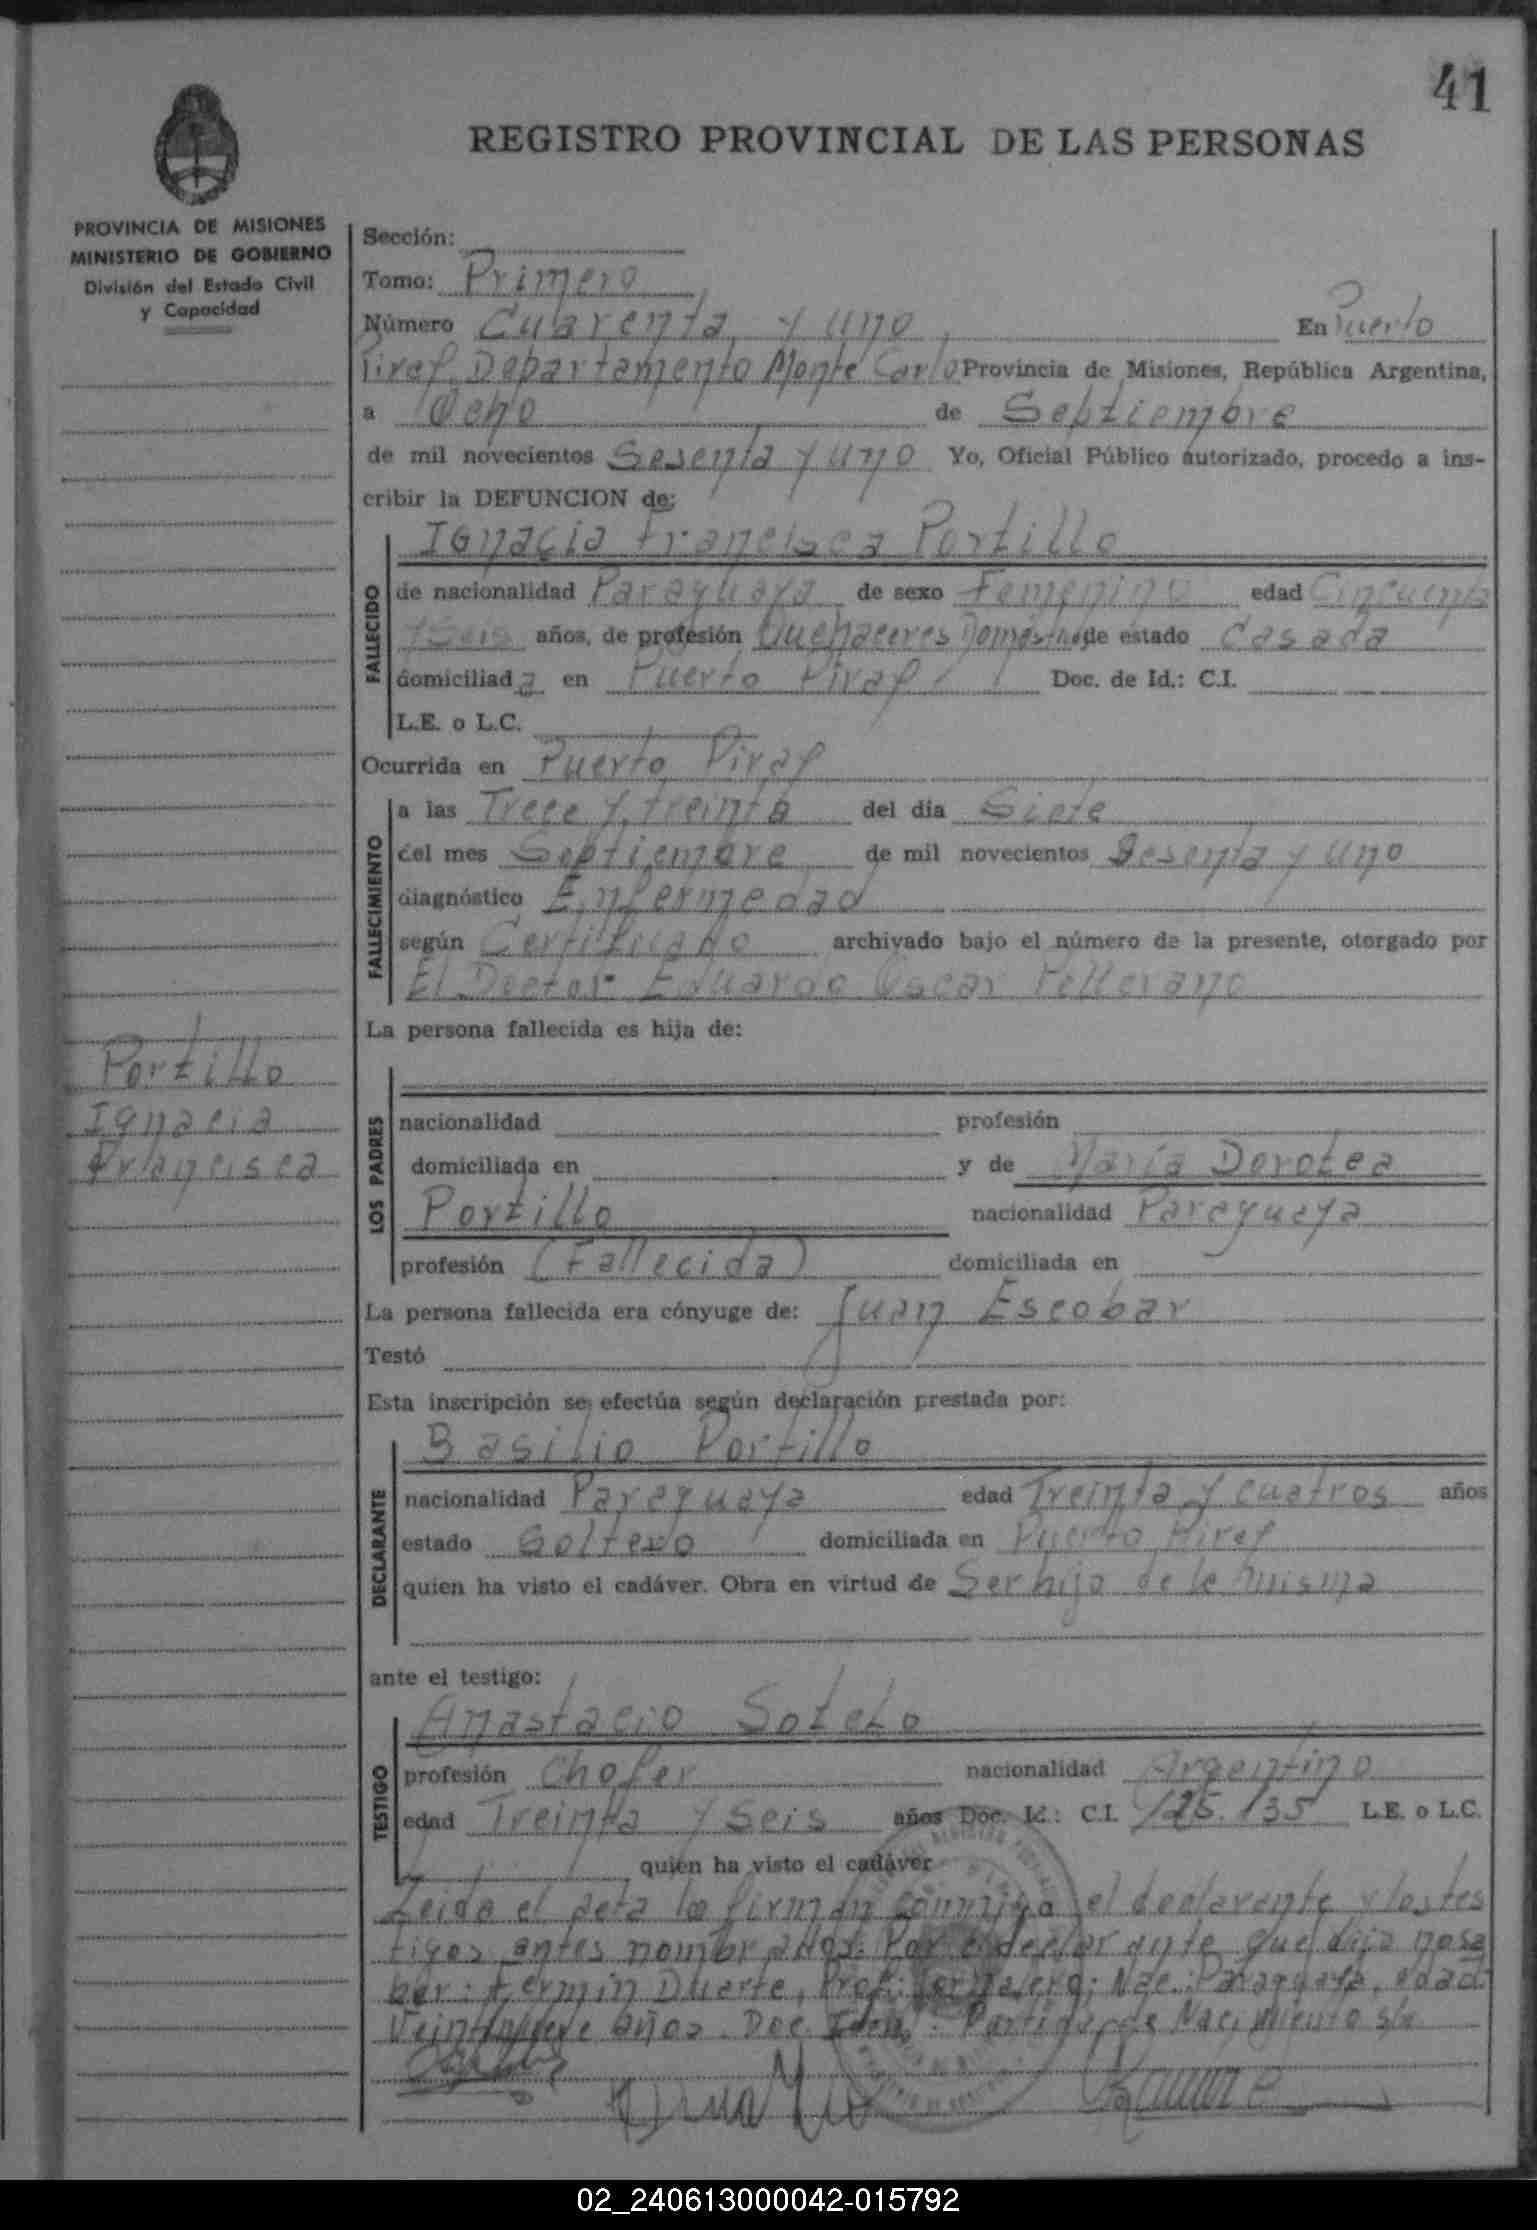 41
REGISTRO PROVINCIAL DE LAS PERSONAS
PROVINCIA DE MISIONES
MINISTERIO DE GOBIERNO
División del Estado Civil
y Capacidad
Sección:
Tomo: Primero
Número Cuarenta y uno En Puerto
Piray Departamento Monte Carlo Provincia de Misiones, República Argentina,
a Ocho de Septiembre
de mil novecientos Sesenta y uno Yo, Oficial Público autorizado, procedo a ins-
cribir la DEFUNCION de:
Ignacia Francisca Portillo
FALLECIDO
de nacionalidad Paraguaya de sexo Femenino edad Cincuenta
y Seis años, de profesión Quehaceres Domésticos de estado Casada
domiciliada en Puerto Piray Doc. de Id.: C.I.
L.E. o L.C.
Ocurrida en Puerto Piray
FALLECIMIENTO
a las Trece y treinta del día Siete
del mes Septiembre de mil novecientos Sesenta y uno
diagnóstico Enfermedad
según Certificado archivado bajo el número de la presente, otorgado por
El Doctor Eduardo Oscar Pellerano
La persona fallecida es hija de:
Portillo
Ignacia
Francisca
LOS PADRES
nacionalidad profesión
domiciliada en y de María Dorotea
Portillo nacionalidad Paraguaya
profesión (Fallecida) domiciliada en
La persona fallecida era cónyuge de: Juan Escobar
Testó
Esta inscripción se efectúa según declaración prestada por:
Basilio Portillo
DECLARANTE
nacionalidad Paraguaya edad Treinta y cuatros años
estado Soltero domiciliada en Puerto Piray
quien ha visto el cadáver. Obra en virtud de Ser hijo de la misma
ante el testigo:
Anastacio Sotelo
TESTIGO
profesión Chofer nacionalidad Argentino
edad Treinta y Seis años Doc. Id.: C.I. 125.135 L.E. o L.C.
quien ha visto el cadáver
Leida el acta la firman conmigo el declarante y los tes
tigos antes nombrados: Por el declarante que dijo no sa
ber: Fermín Duarte, Prof: Jornalero; Nac.: Paraguaya, edad:
años. Doc. Iden.: Partida de Nacimiento s/n
02_240613000042-015792